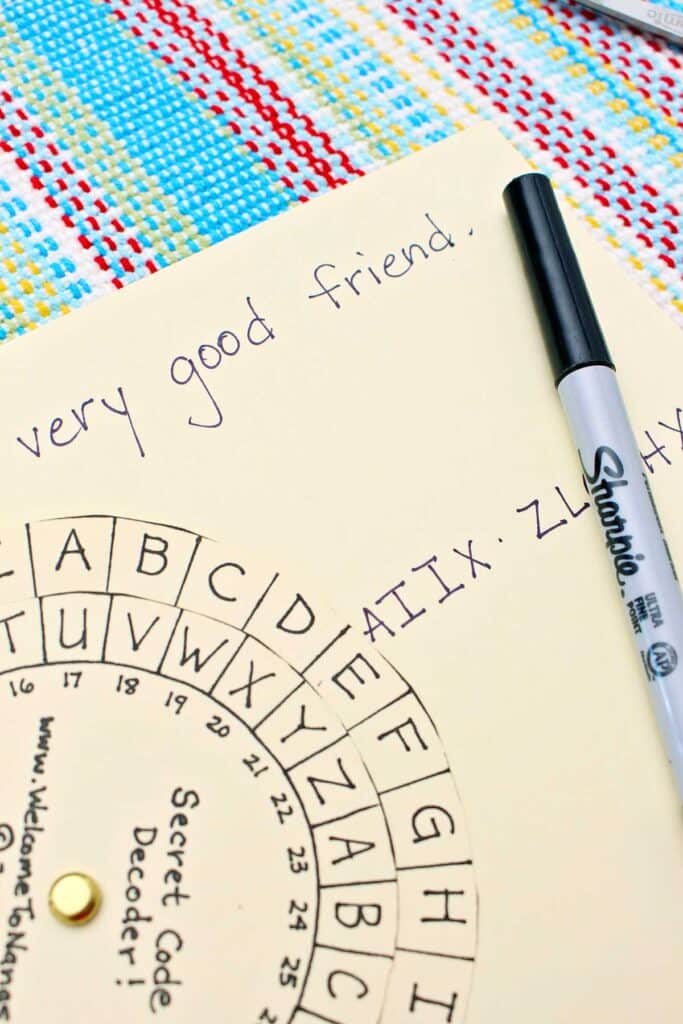 very good friend.
AIIX. ZL
Sharpie.
ULTRA
FINE
POINT
AP
A B C D E F G H I
T U V W X Y Z A B C
16 17 18 19 20 21 22 23 24 25
Secret Code
Decoder!
www.WelcomeToNanas